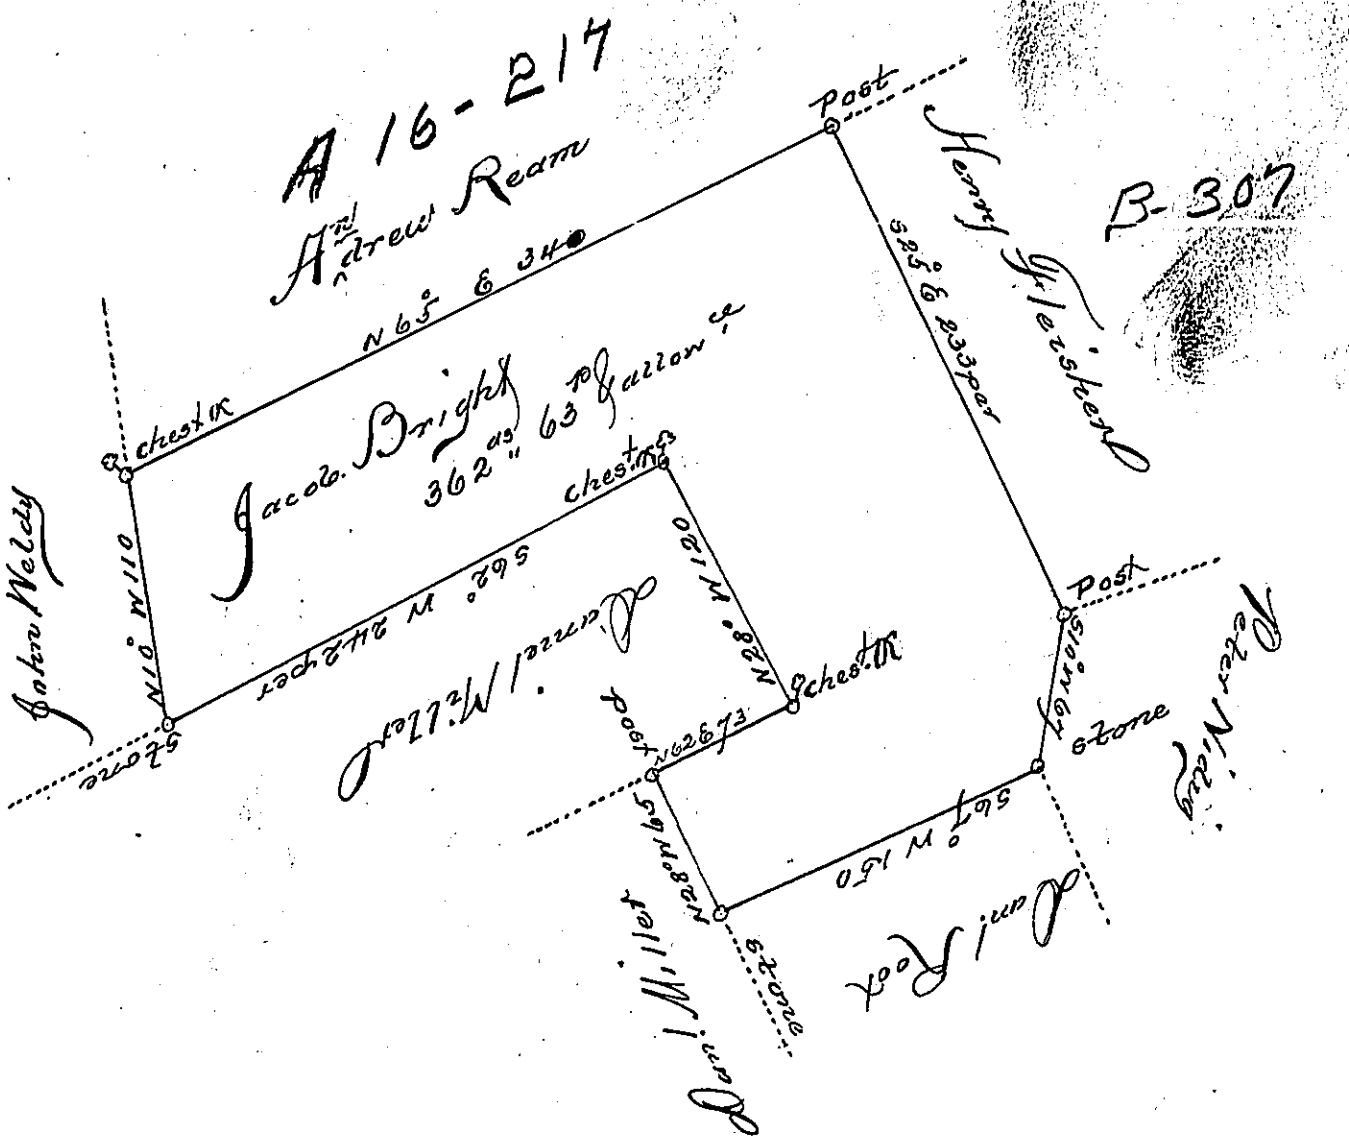 A 16-217
Andrew Ream
B-307
Post
Henry Hershey
N 65° E 34
S 25° E 233 par
chest 1K
Jacob Bright
362 as 63 ps & allow ce
chest.1K
John Weldy
N 10° W 110
S 62° W 242 per
Daniel Miller
N 28° W 120
chest.1K
Post
Peter Nidig
S 10 W 67
stone
stone
post
N 62 E 73
S 67° W 150
N 28° W 65
Danl Root
Danl Miller
stone